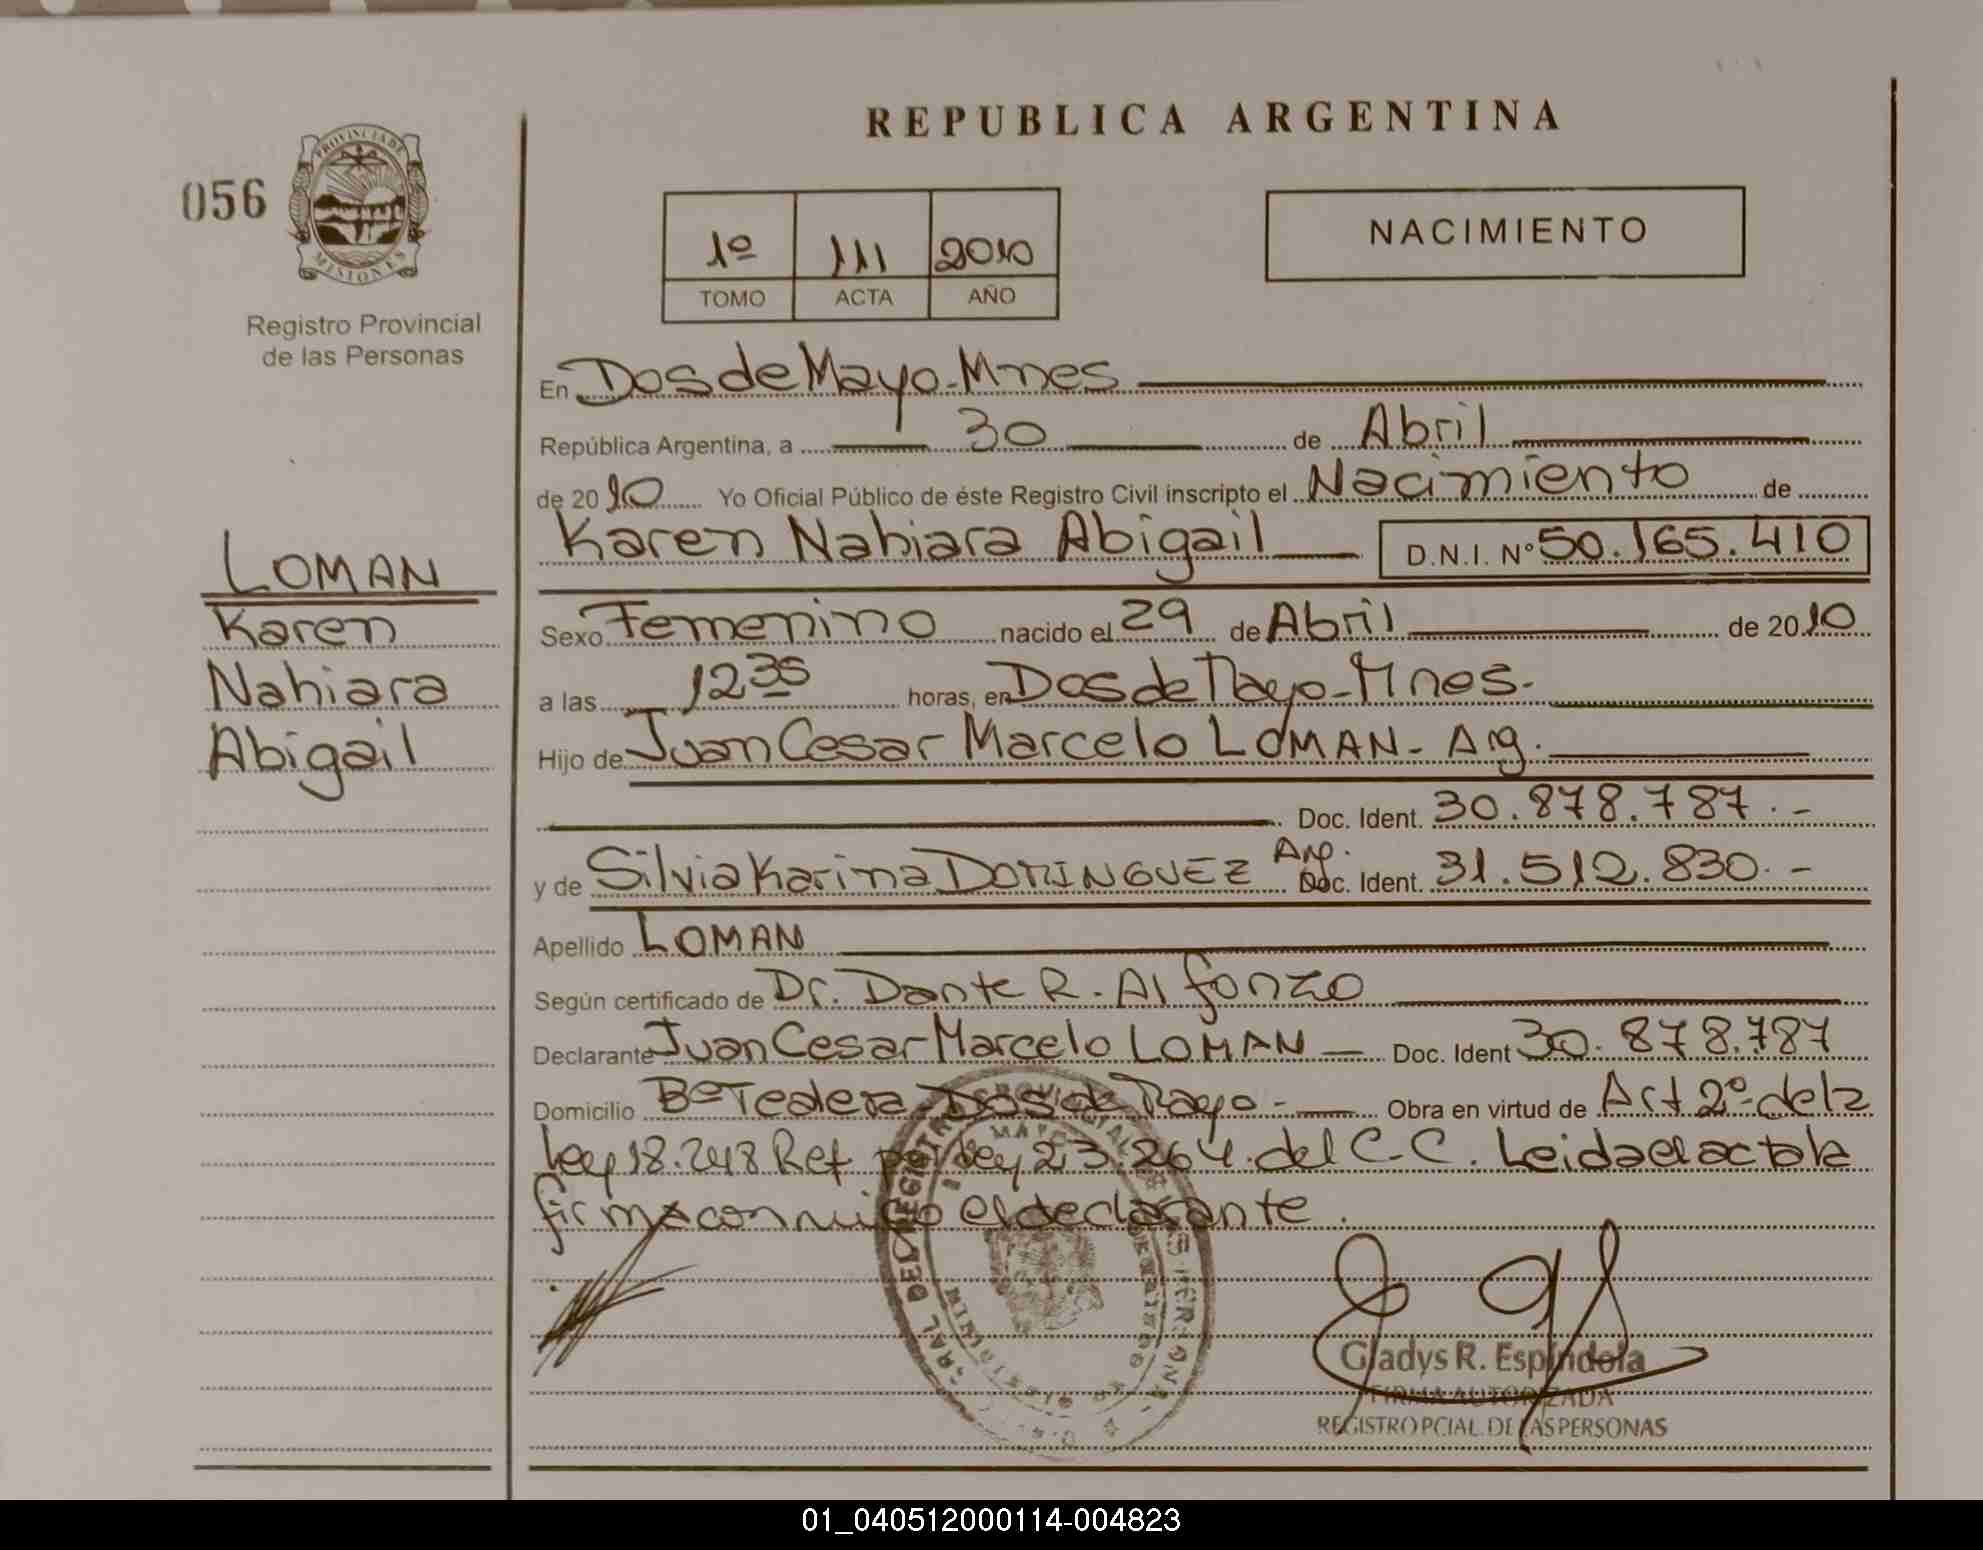 REPUBLICA ARGENTINA
056
PROVINCIA DE
MISIONES
Registro Provincial
de las Personas
1º 111 2010
TOMO ACTA AÑO
NACIMIENTO
En Dos de Mayo-Mnes
República Argentina, a 30 de Abril
de 2010 Yo Oficial Público de éste Registro Civil inscripto el Nacimiento de
Karen Nahiara Abigail D.N.I. Nº 50.165.410
LOMAN
Karen
Nahiara
Abigail
Sexo Femenino nacido el 29 de Abril de 2010
a las 12 35 horas, en Dos de Mayo-Mnes.
Hijo de Juan Cesar Marcelo LOMAN- Arg.
Doc. Ident. 30.878.787.-
y de Silvia Karina DOMINGUEZ Arg. Doc. Ident. 31.512.830.-
Apellido LOMAN
Según certificado de Dr. Dante R. Alfonzo
Declarante Juan Cesar Marcelo LOMAN Doc. Ident 30.878.787
Domicilio Bº Tealera Dos de Mayo- Obra en virtud de Art 2º de la
Ley 18.248 Ref por Ley 23.264 del C.C. Leida el acta la
firma conmigo el declarante.
Gladys R. Espíndola
FIRMA AUTORIZADA
REGISTRO PCIAL. DE LAS PERSONAS
01_040512000114-004823